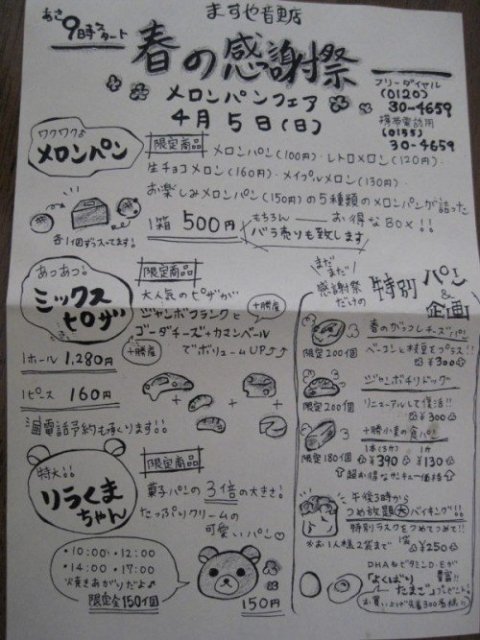 ますや音更店
あさ9時スタート
春の感謝祭
メロンパンフェア
4月5日(日)
フリーダイヤル
(0120)
30-4659
携帯電話用
(0155)
30-4659
ワクワク♪
メロンパン
各1個ずつ入ってます。
限定商品
メロンパン(100円)・レトロメロン(120円)・
生チョコメロン(160円)・メイプルメロン(130円)・
お楽しみメロンパン(150円)の5種類のメロンパンが詰った
1箱 500円 お得なBox!!
もちろん
バラ売りも致します
あつあつ♪
ミックス
ピザ
1ホール 1,280円
1ピース 160円
電話予約も承ります!!
限定商品
大人気のピザが
ジャンボフランクと
十勝産
ゴーダチーズ+カマンベール
十勝産
でボリュームUP⤴⤴
特大!!
リラくま
ちゃん
限定商品
菓子パンの3倍の大きさ!
たっぷりクリームの
可愛いパン♡
・10:00・12:00
・14:00・17:00
焼きあがりだよ♪
限定全150個
150円
まだまだ!
感謝祭
だけの
特別パン
&
企画
春のガッフレチーズパン
限定200個
ベーコンと枝豆をプラス!!
¥300
ジャンボチリドッグ
限定200個
リニューアルして復活!!
¥300
十勝小麦の食パン
限定180個
1本(3斤) 1斤
¥390 ¥130
超お得なサンキュー価格
午後3時から
つめ放題大バイキング!!
特別ラスクをつめてつめて!!
*お1人様2袋まで
1袋 ¥250
DHA&ビタミンD・Eが
豊富!!
「よくばり
たまご」プレゼント!
お買い上げ先着300名様